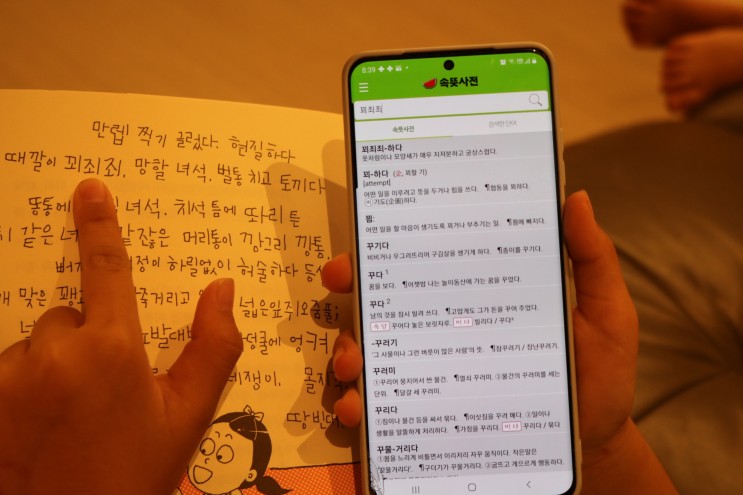 만렙! 찍기 글렀다. 현질하다
때깔이 꾀죄죄, 망할 녀석, 벌통 치고 토끼다
똥통에 녀석, 치석 틈에 똬리 튼
같은 같잖은 머리통이 깡그리 깡통,
하릴없이 허술하다
맞은 넓은잎쥐오줌풀;
덩굴에 엉켜
땅빈대
8:39
속뜻사전
꾀죄죄
속뜻사전 검색한 단어
꾀죄죄-하다
옷차림이나 모양새가 매우 지저분하고 궁상스럽다.
꾀-하다 (企, 꾀할 기)
[attempt]
어떤 일을 이루려고 뜻을 두거나 힘을 쓰다. ¶협동을 꾀하다.
비 기도(企圖)하다.
꾐:
어떤 일을 할 마음이 생기도록 꾀거나 부추기는 일. ¶꾐에 빠지다.
꾸기다
비비거나 우그러뜨리어 구김살을 생기게 하다. ¶종이를 꾸기다.
꾸다 1
꿈을 보다. ¶어젯밤 나는 놀이동산에 가는 꿈을 꾸었다.
꾸다 2
남의 것을 잠시 빌려 쓰다. ¶고맙게도 그가 돈을 꾸어 주었다.
속담 꾸어다 놓은 보릿자루. 비다 빌리다 / 꾸다²
-꾸러기
'그 사물이나 그런 버릇이 많은 사람'의 뜻. ¶잠꾸러기 / 장난꾸러기.
꾸러미
①꾸리어 뭉치어서 싼 물건. ¶열쇠 꾸러미. ②물건의 꾸러미를 세는
단위. ¶달걀 세 꾸러미.
꾸리다
①짐이나 물건 등을 싸서 묶다. ¶이삿짐을 꾸려 메다. ②일이나
생활을 알뜰하게 처리하다. ¶가정을 꾸리다. 비다 꾸리다 / 묶다
꾸물-거리다
①몸을 느리게 비틀이며 이리저리 자꾸 움직이다. 작은말은
'꼬물거리다'. ¶구더기가 꾸물거리다. ②굼뜨고 게으르게 행동하다.